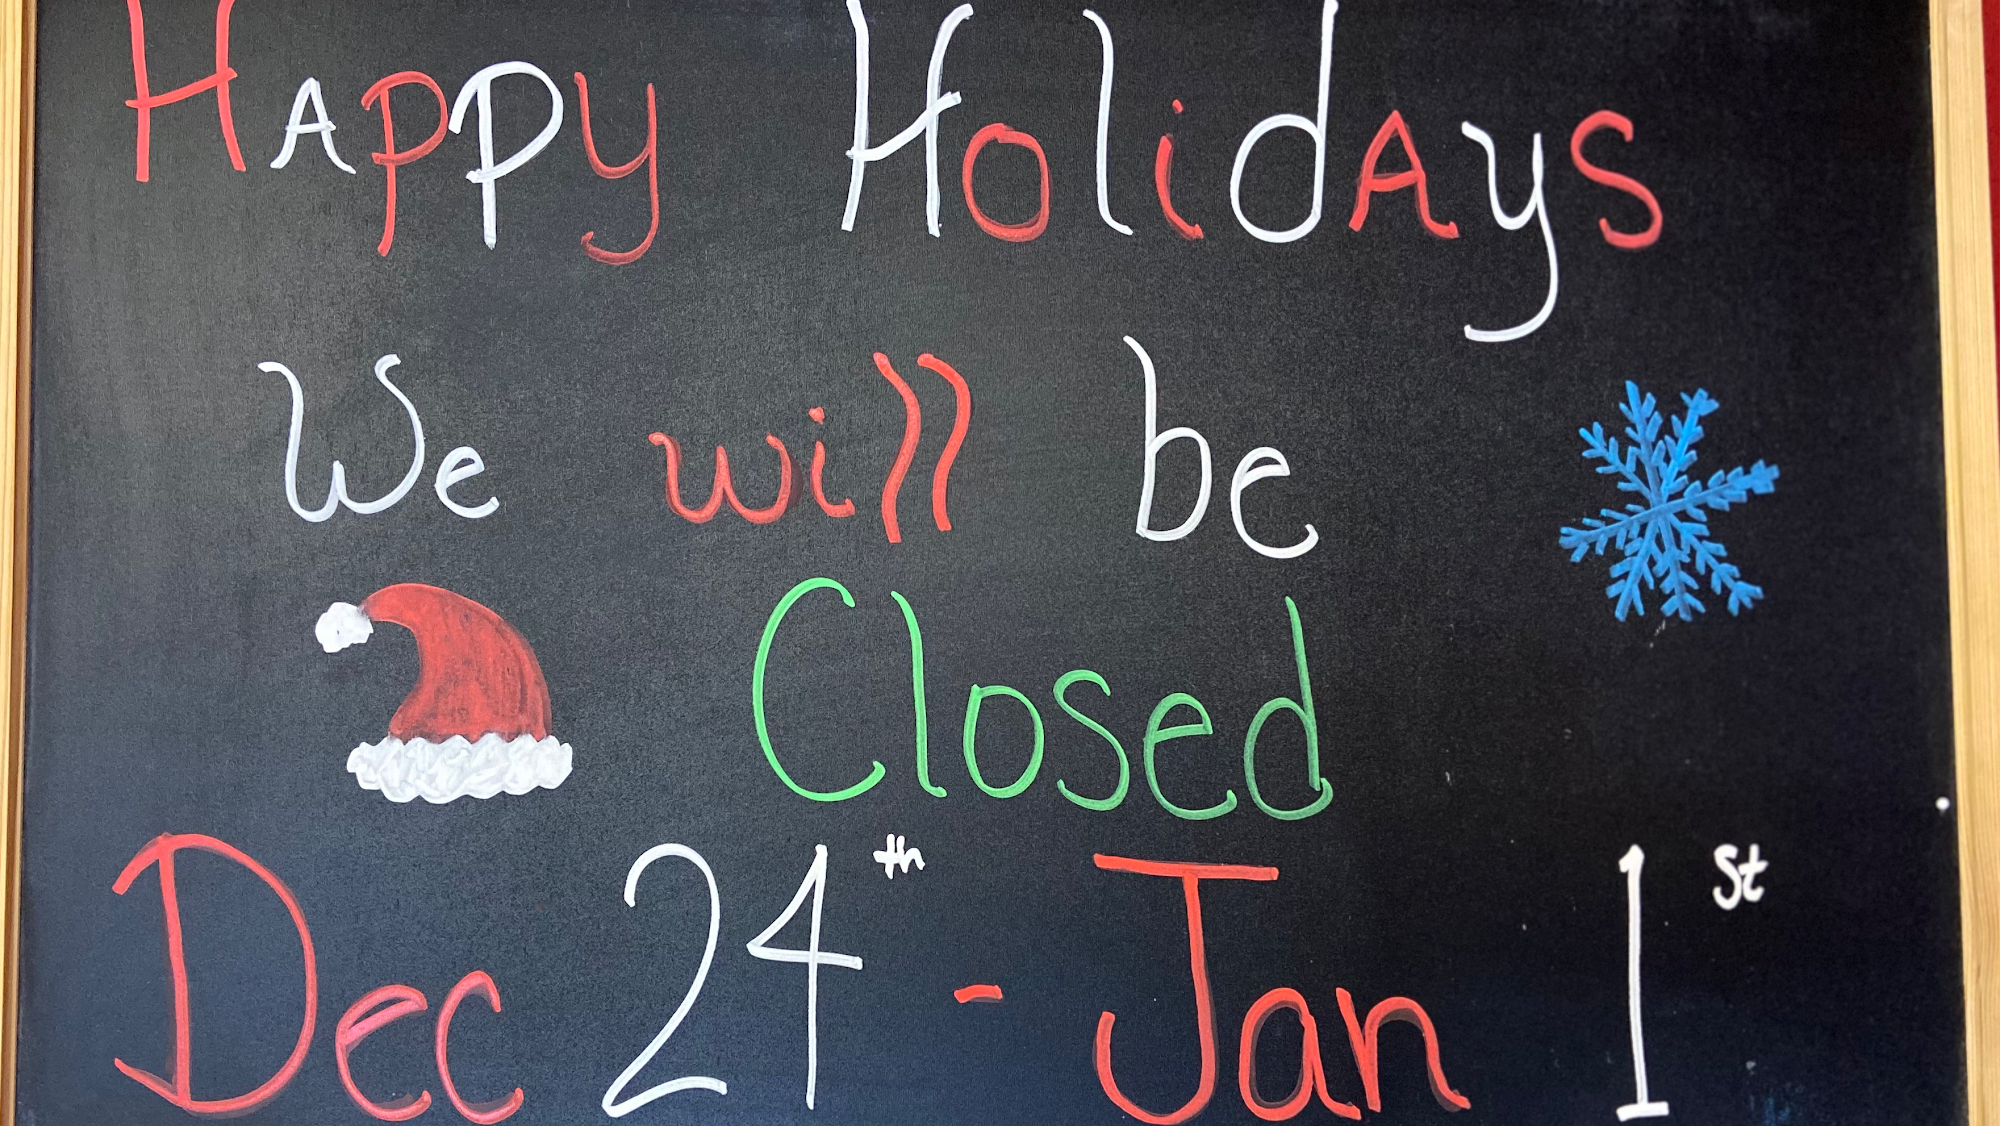 Happy Holidays
We will be
Closed
Dec 24th - Jan 1st